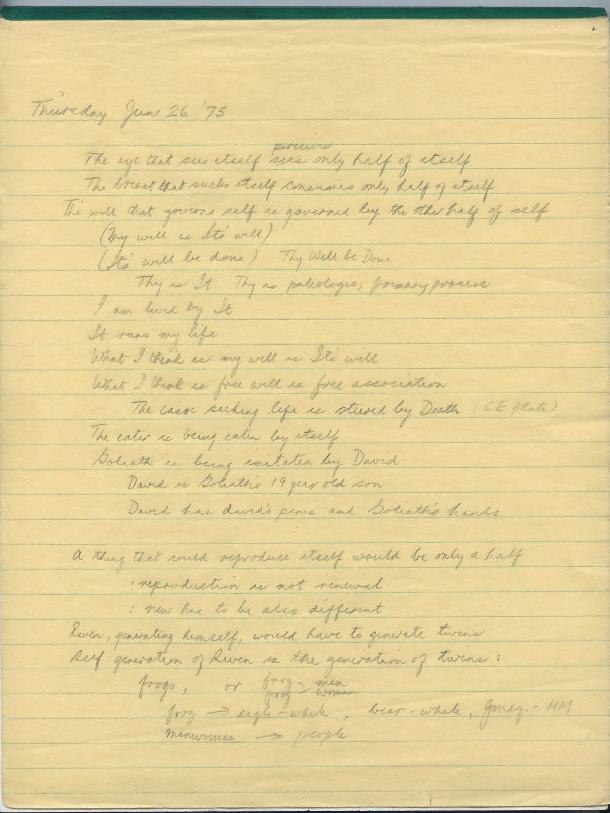 Thursday June 26 '75
perceives
The eye that sees itself sees only half of itself
The breast that sucks itself consumes only half of itself
The will that governs self is governed by the other half of self
(My will is Its' will)
(Its' will be done) Thy Will be Done
Thy is It Thy is paleologic, primary process
I am lived by It
It runs my life
What I think is my will is Its' will
What I think is free will is free association
The canoe seeking life is steered by Death (CE plate)
The eater is being eaten by itself
Goliath is being imitated by David
David is Goliath's 19 year old son
David has david's penis and Goliath's hands
A thing that could reproduce itself would be only a half
: reproduction is not renewal
: new has to be also different
Raven, generating himself, would have to generate twins
Self generation of Raven is the generation of twins :
frogs, or frog-men
frog-woman
frog → eagle-whale, bear-whale, - HM
manwoman → people